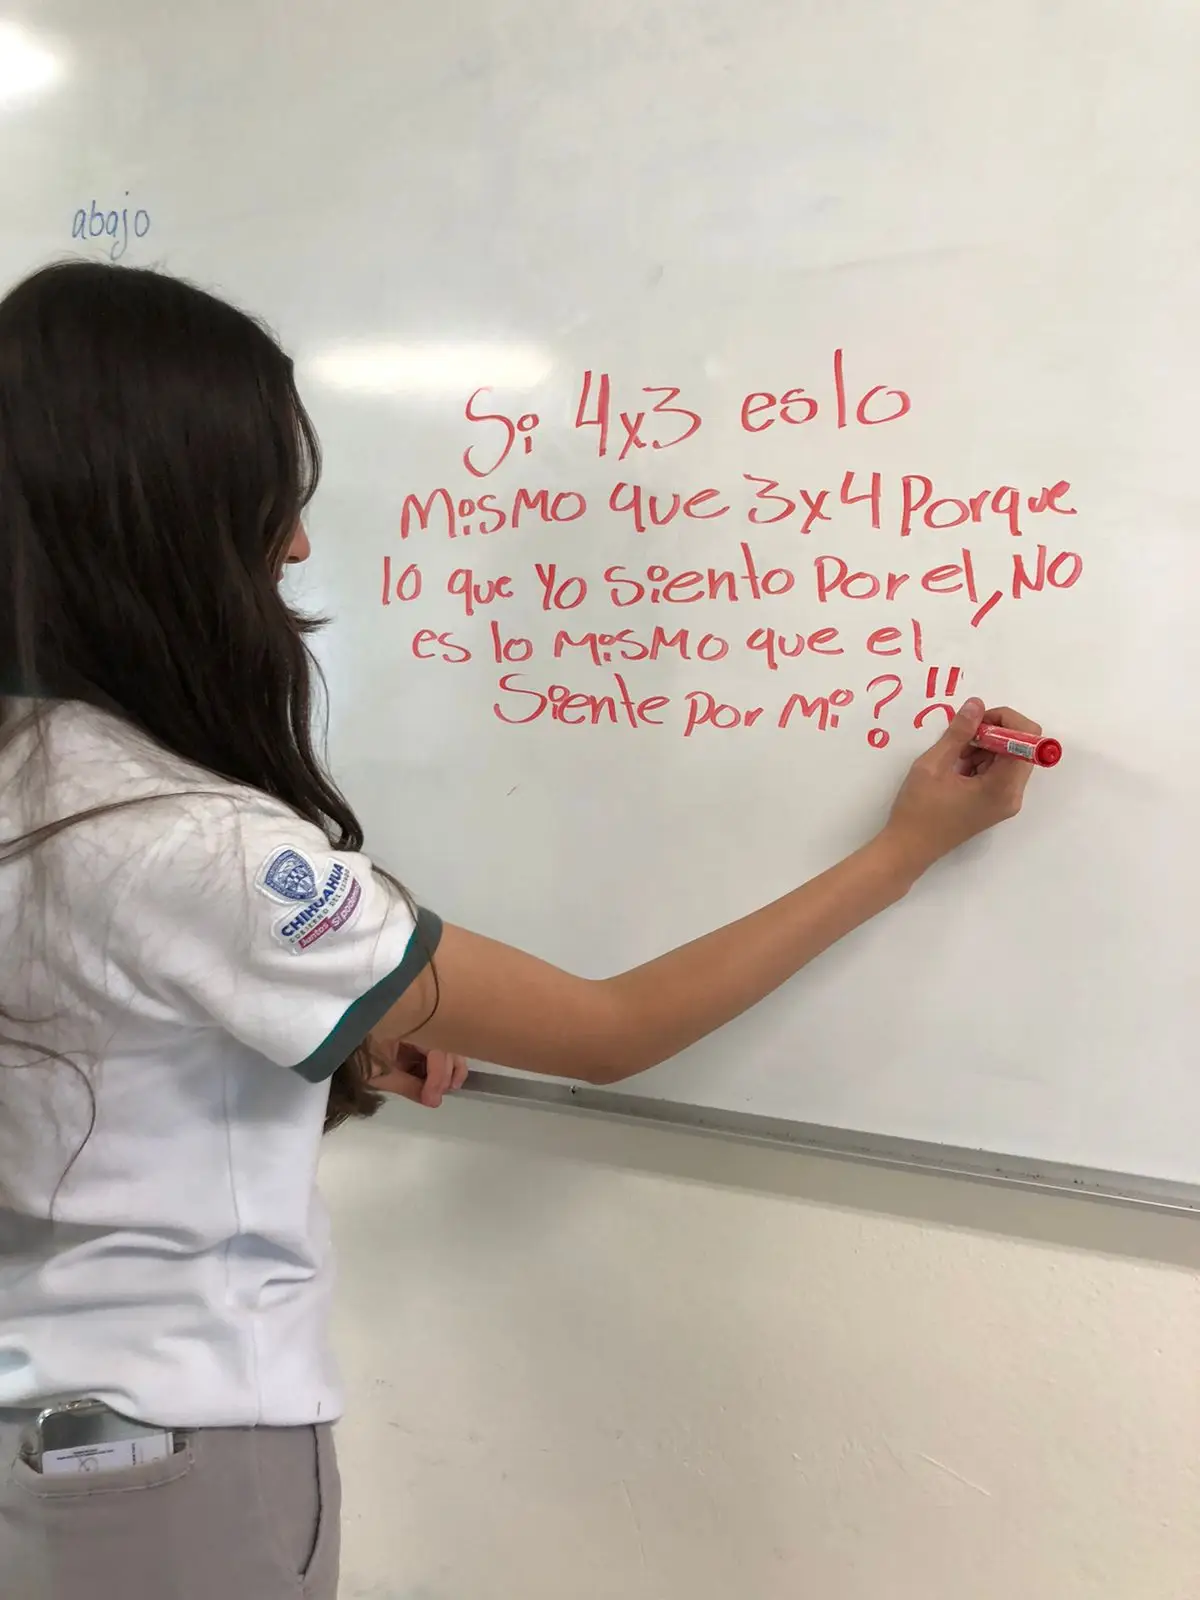 abajo
Si 4x3 es lo
mismo que 3x4 Porque
lo que Yo siento Por el, NO
es lo mismo que el
Siente por mi? !!
CHIHUAHUA
GOBIERNO DEL ESTADO
Juntos Sí podemos